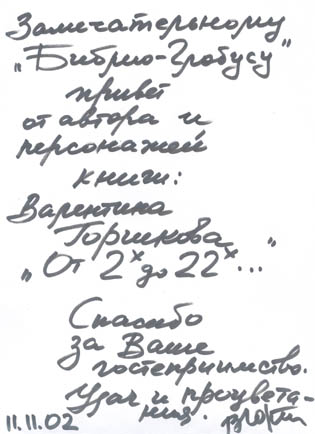 Замечательному
"Библио-Глобусу"
привет
от автора и
персонажей
книги:
Валентина
Горшкова
"От 2х до 22х..."
Спасибо
за Ваше
гостеприимство.
Удач и процвета-
ния.
11.11.02